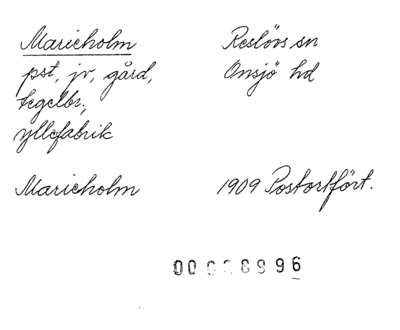 Marieholm Reslövs sn
pst, jv, gård, Onsjö hd
tegelbr.,
yllefabrik
Marieholm 1909 Postortfört.